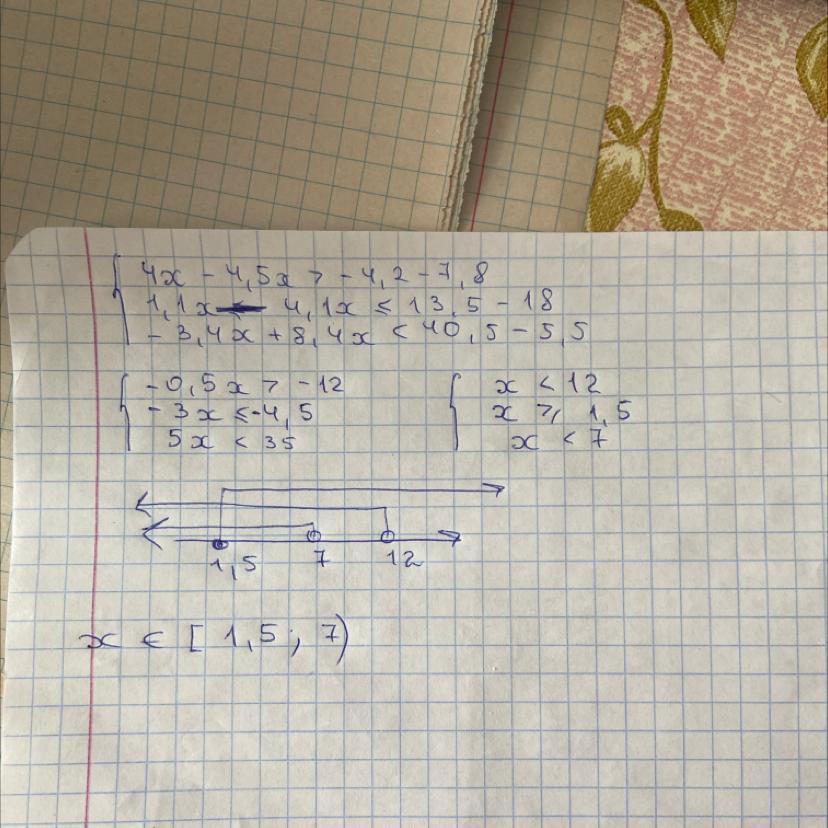 4x - 4,5x > -4,2 - 7,8
1,1x - 4,1x ≤ 13,5 - 18
- 3,4x + 8,4x < 40,5 - 5,5
-0,5x > -12
-3x ≤ -4,5
5x < 35
x < 12
x ⩾ 1,5
x < 7
1,5 7 12
x ∈ [ 1,5 ; 7)